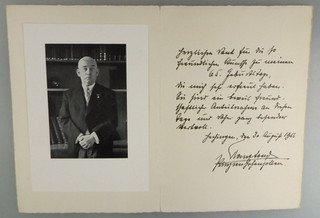 Herzlichen Dank für die so
freundlichen Wünsche zu meinem
65. Geburtstage,
die mich sehr erfreut haben.
Sie sind ein Beweis freund-
schaftlicher Anteilnahme an diesem
Tage und daher ganz besonders
wertvoll.
Hechingen, den 30. August 19
Prinz von Hohenzollern